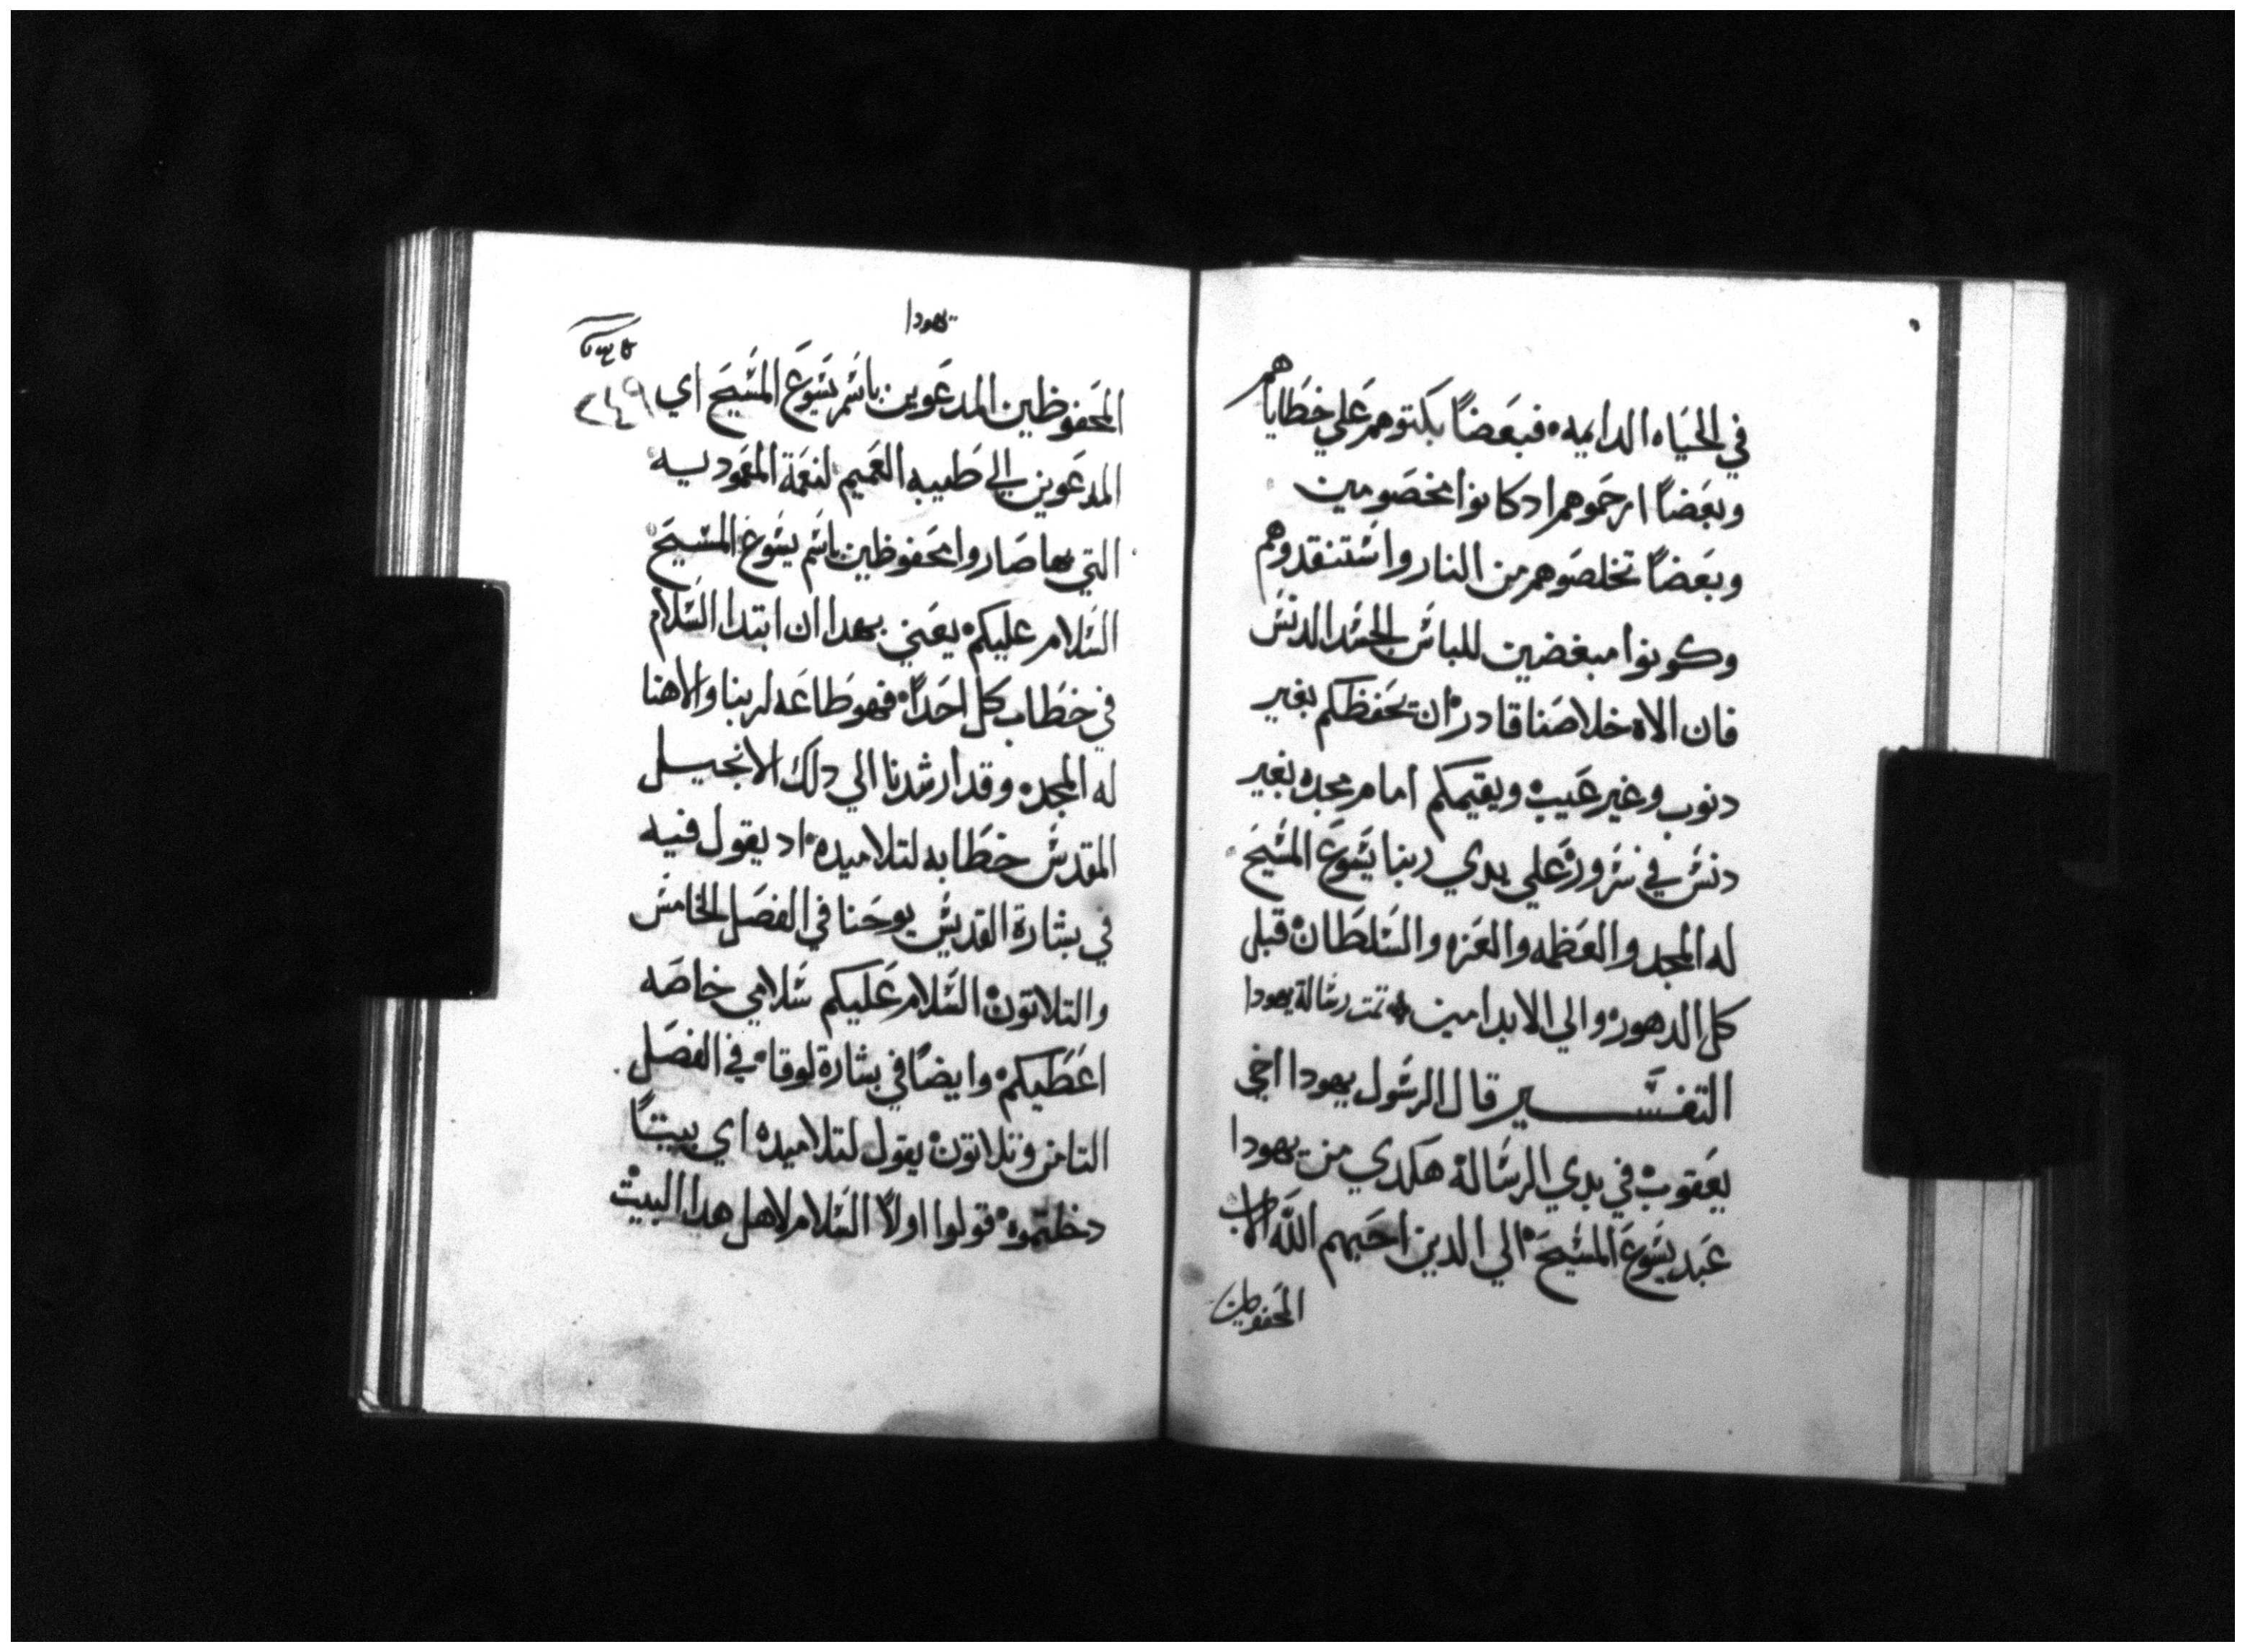 في الحياه الدايمه فبعضاً بكتوهم علي خطاياهم
وبعضاً ارحموهم ادكانوا مخصومين
وبعضاً تخلصوهم من النار واستنقدوهم
وكونوا مبغضين للباس الجسد الدنس
فان الاه خلاصنا قادر ان يحفظكم بغير
دنوب وغير عيب ويقيمكم امام مجده بغير
دنس في سرور علي يدي ربنا يسوع المسيح
له المجد والعظمه والعزه والسلطان قبل
كل الدهور والي الابد امين تمت رسالة يهودا
التفسير قال الرسول يهودا اخي
يعقوب في بدي الرسالة هكدي من يهودا
عبد يسوع المسيح الي الدين احبهم الله الاب
المحفوظين
يهودا
٢٤٩
المحفوظين المدعوين باسم يسوع المسيح اي
المدعوين الي طيبه العميم لنعمة المعموديه
التي بها صاروا محفوظين باسم يسوع المسيح
السلام عليكم يعني بهدا ان ابتدا السلام
في خطاب كل احداً فهو طاعه لربنا والاهنا
له المجد وقد ارشدنا الي دلك الانجيل
المقدس خطابه لتلاميده اد يقول فيه
في بشارة القديس يوحنا في الفصل الخامس
والتلاتون السلام عليكم سلامي خاصه
اعطيكم وايضاً في بشارة لوقا في الفصل
التامن وتلاتون يقول لتلاميده اي بيتاً
دخلتموه قولوا اولاً السلام لاهل هدا البيت